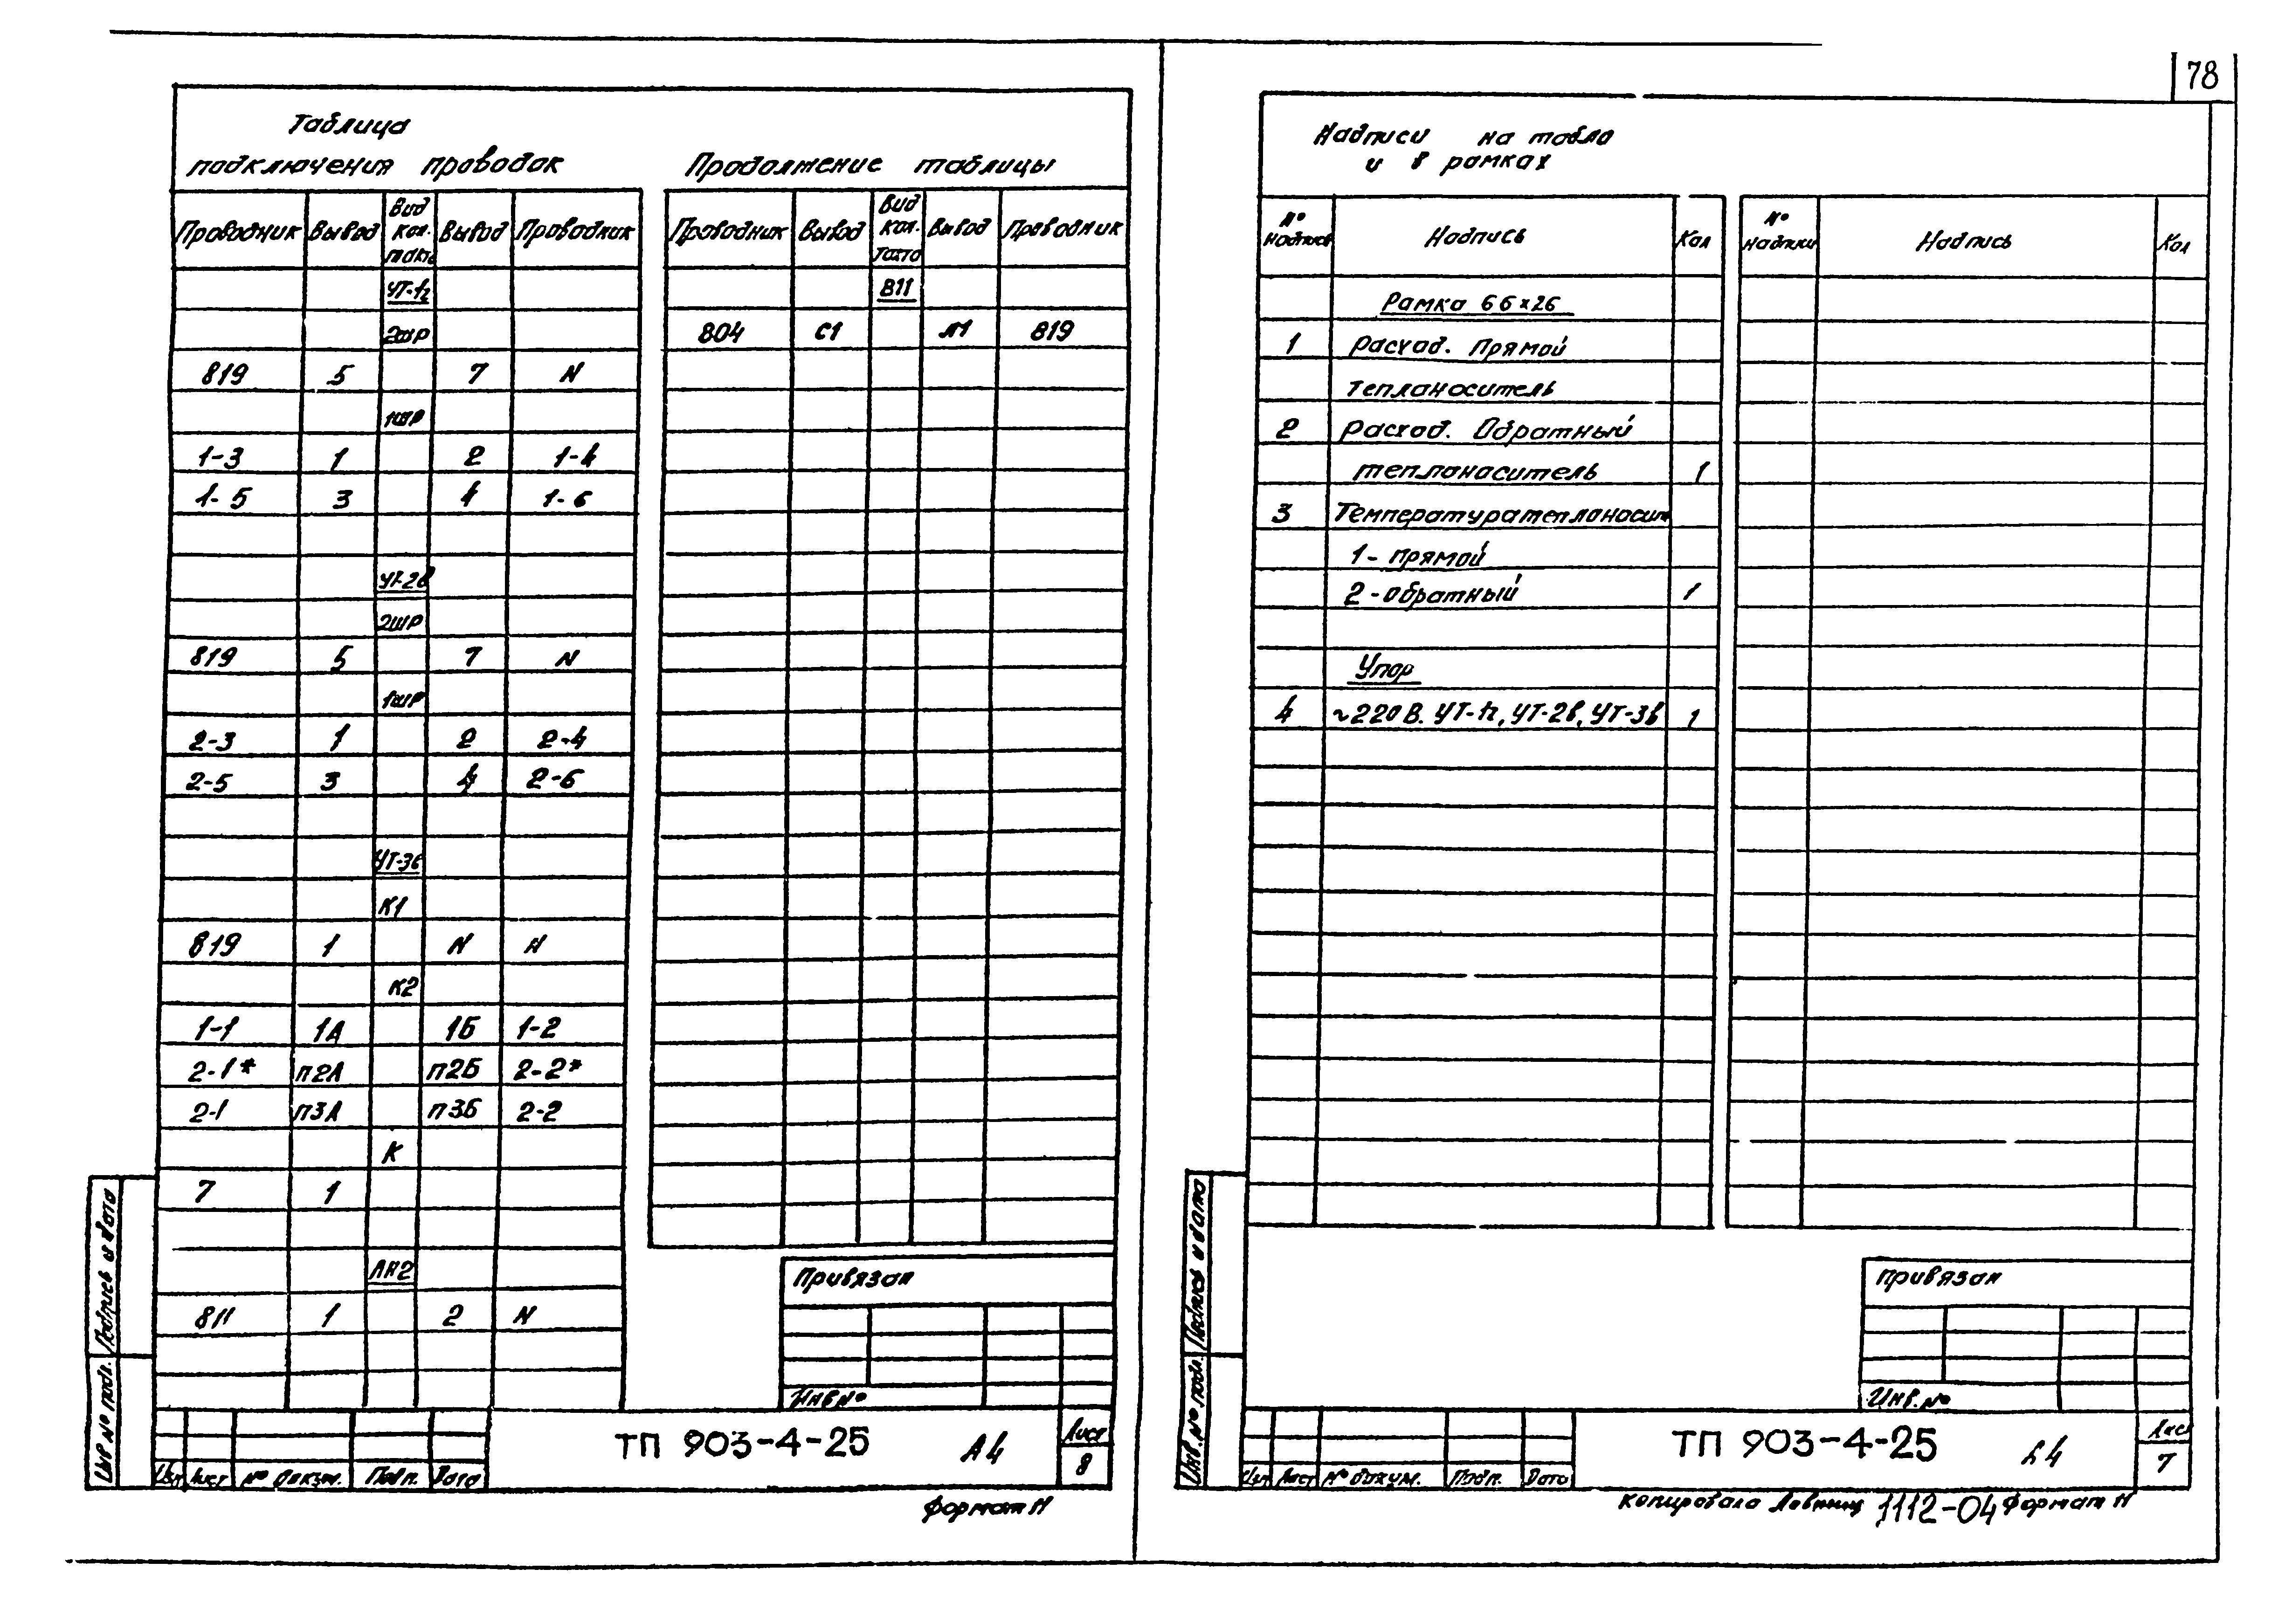 78
Таблица
подключения проводок
Проводник Вывод Вид кон. такта Вывод Проводник
УТ-1г
2шр
819 5 7 N
1шр
1-3 1 2 1-4
1-5 3 4 1-6
УТ-2в
2шр
819 5 7 N
1шр
2-3 1 2 2-4
2-5 3 4 2-6
УТ-3в
К1
819 1 N N
К2
1-1 1А 1Б 1-2
2-1* п2А п2Б 2-2*
2-1 п3А п3Б 2-2
К
7 1
ЛН2
811 1 2 N
Продолжение таблицы
Проводник Вывод Вид кон. такта Вывод Проводник
В11
804 С1 Л1 819
Привязан
Инв №
ТП 903-4-25 А4
Лист
8
Изм Лист № докум. Подп. Дата
Инв № подл. Подпись и дата
Формат 11
Надписи на табло
и в рамках
№ надписи Надпись Кол
№ надписи Надпись Кол
Рамка 66×26
1 Расход. Прямой
теплоноситель
2 Расход. Обратный
теплоноситель 1
3 Температура теплоносит
1- прямой
2-обратный 1
Упор
4 ~220 В. УТ-1г, УТ-2в, УТ-3в 1
Привязан
Инв. №
ТП 903-4-25
Лис
7
Изм Лист № докум. Подп. Дата
Инв. № подл. Подпись и дата
Копировала 1112-04 Формат 11